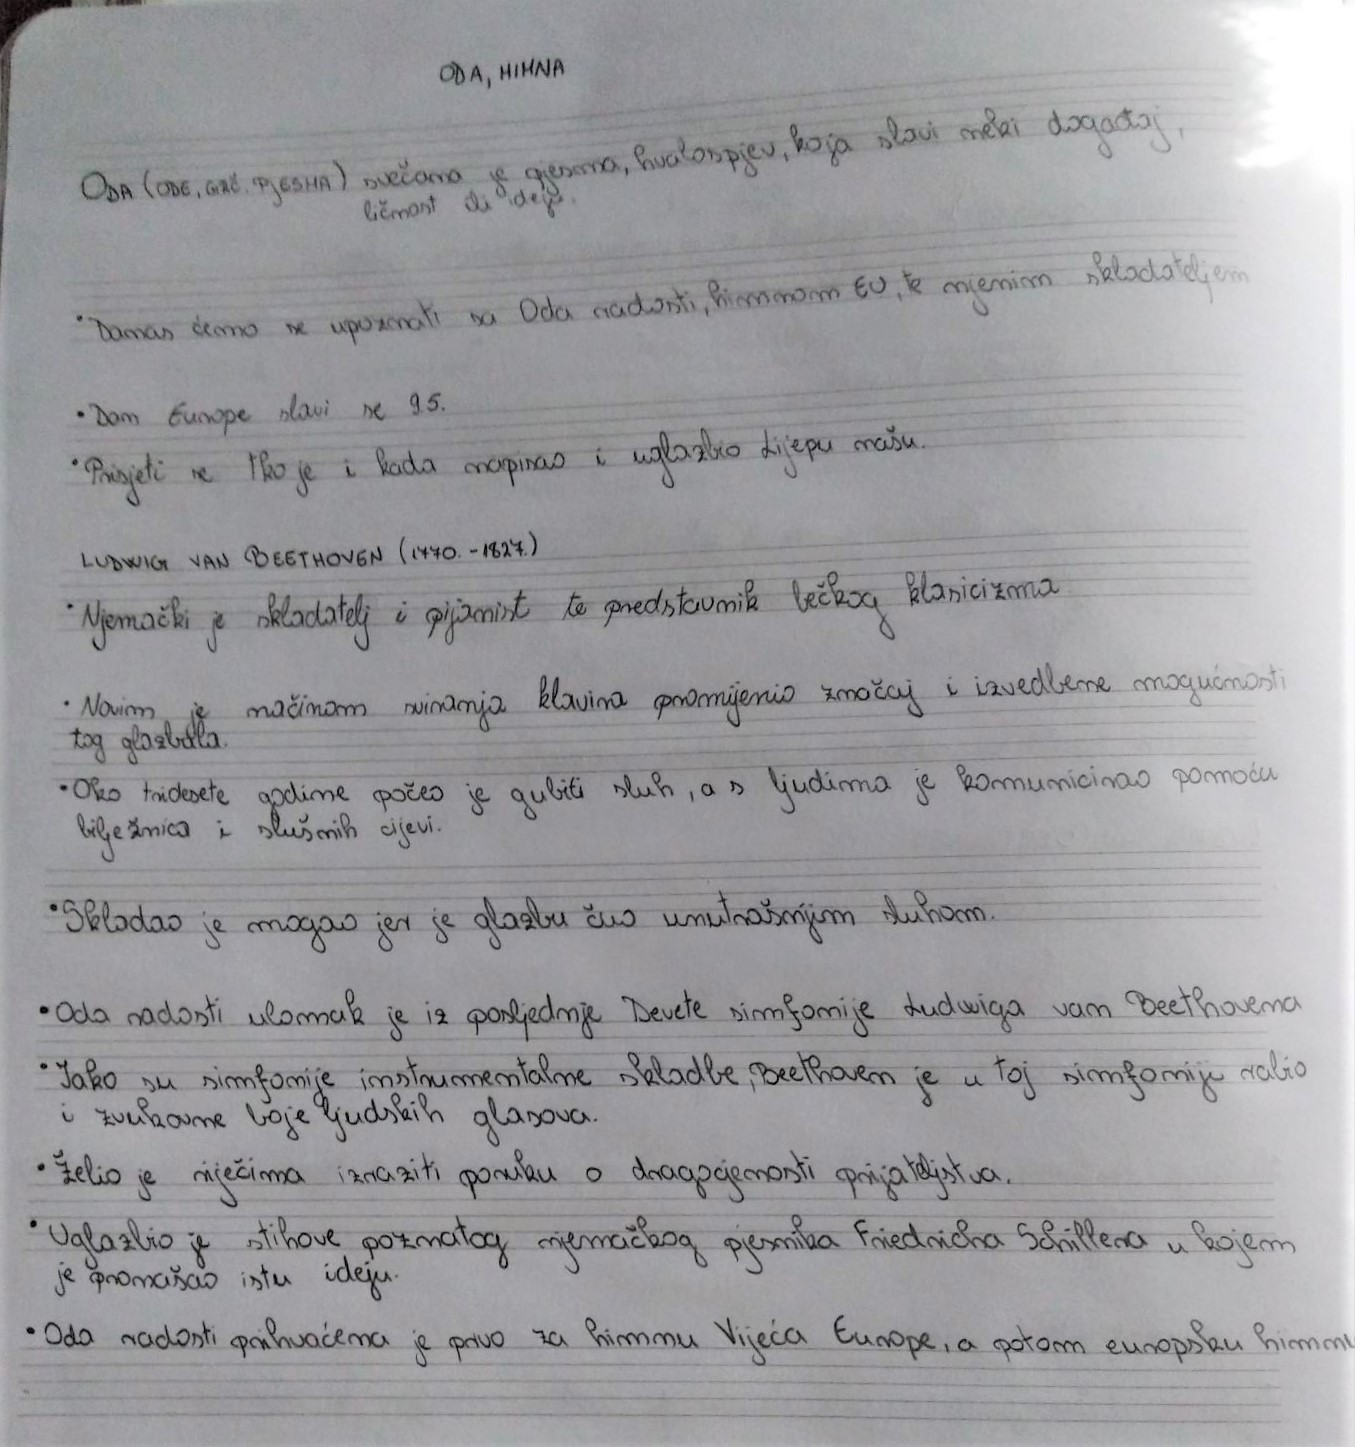 ODA, HIMNA
ODA (ODE, GRČ. PJESMA) svečana je pjesma, hvalospjev, koja slavi neki događaj,
ličnost ili ideju.
• Danas ćemo se upoznati sa Oda radosti, himnom EU, te njenim skladateljem
• Dan Europe slavi se 9.5.
• Prisjeti se tko je i kada napisao i uglazbio Lijepu našu.
LUDWIG VAN BEETHOVEN (1770. - 1827.)
• Njemački je skladatelj i pijanist te predstavnik bečkog klasicizma
• Novim je načinom sviranja klavira promijenio značaj i izvedbene mogućnosti
tog glazbala.
• Oko tridesete godine počeo je gubiti sluh, a s ljudima je komunicirao pomoću
bilježnica i slušnih cijevi.
• Skladao je mogao jer je glazbu čuo unutrašnjim sluhom.
• Oda radosti ulomak je iz posljednje Devete simfonije Ludwiga van Beethovena
• Iako su simfonije instrumentalne skladbe, Beethoven je u toj simfoniji rabio
i zvukovne boje ljudskih glasova.
• Želio je riječima izraziti poruku o dragocjenosti prijateljstva.
• Uglazbio je stihove poznatog njemačkog pjesnika Friedricha Schillera u kojem
je pronašao istu ideju.
• Oda radosti prihvaćena je prvo za himnu Vijeća Europe, a potom europsku himnu